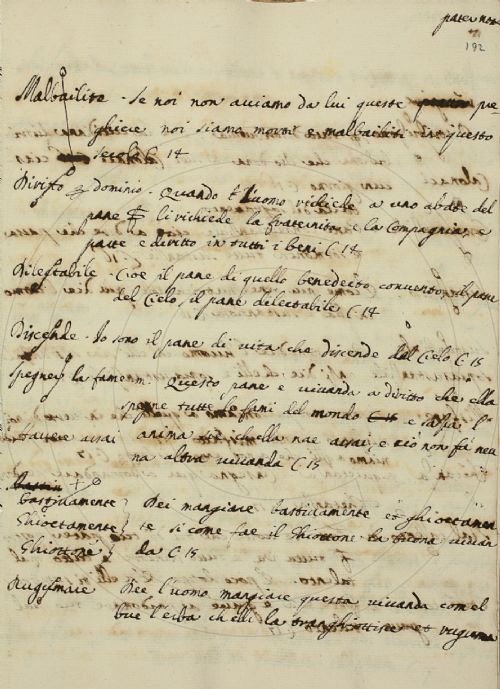 pater nos
192
Malbailito - Se noi non avviamo da lui queste pre
ghiere noi siamo morti e malbailiti in questo
secolo C 14
Diritto dominio - Quando l'uomo richiede a uno abate del
pane li richiede la fraternita e la Compagnia, e
parte e diritto in tutti i beni C 14
Dilectabile - Cioè il pane di quello benedecto convento, il pane
del Cielo, il pane delectabile C 14
Discende - Io sono il pane di vita che discende dal Cielo C 15
Spegnere la fame - Questo pane e vivanda a diritto che ella
spegne tutte le fami del mondo e sazia l'
avere assai anima che ella nae assai, e ciò non fa neu
na altra vivanda C 15
bastidamente Dei mangiare bastidamente et ghioctamen
Ghioctamente te si come fae il Ghiottone la buona vivan
Ghiottone da C 15
Rugumare Dee l'uomo mangiare questa vivanda com el
bue l'erba ch elli la tranghiottisce et ruguma